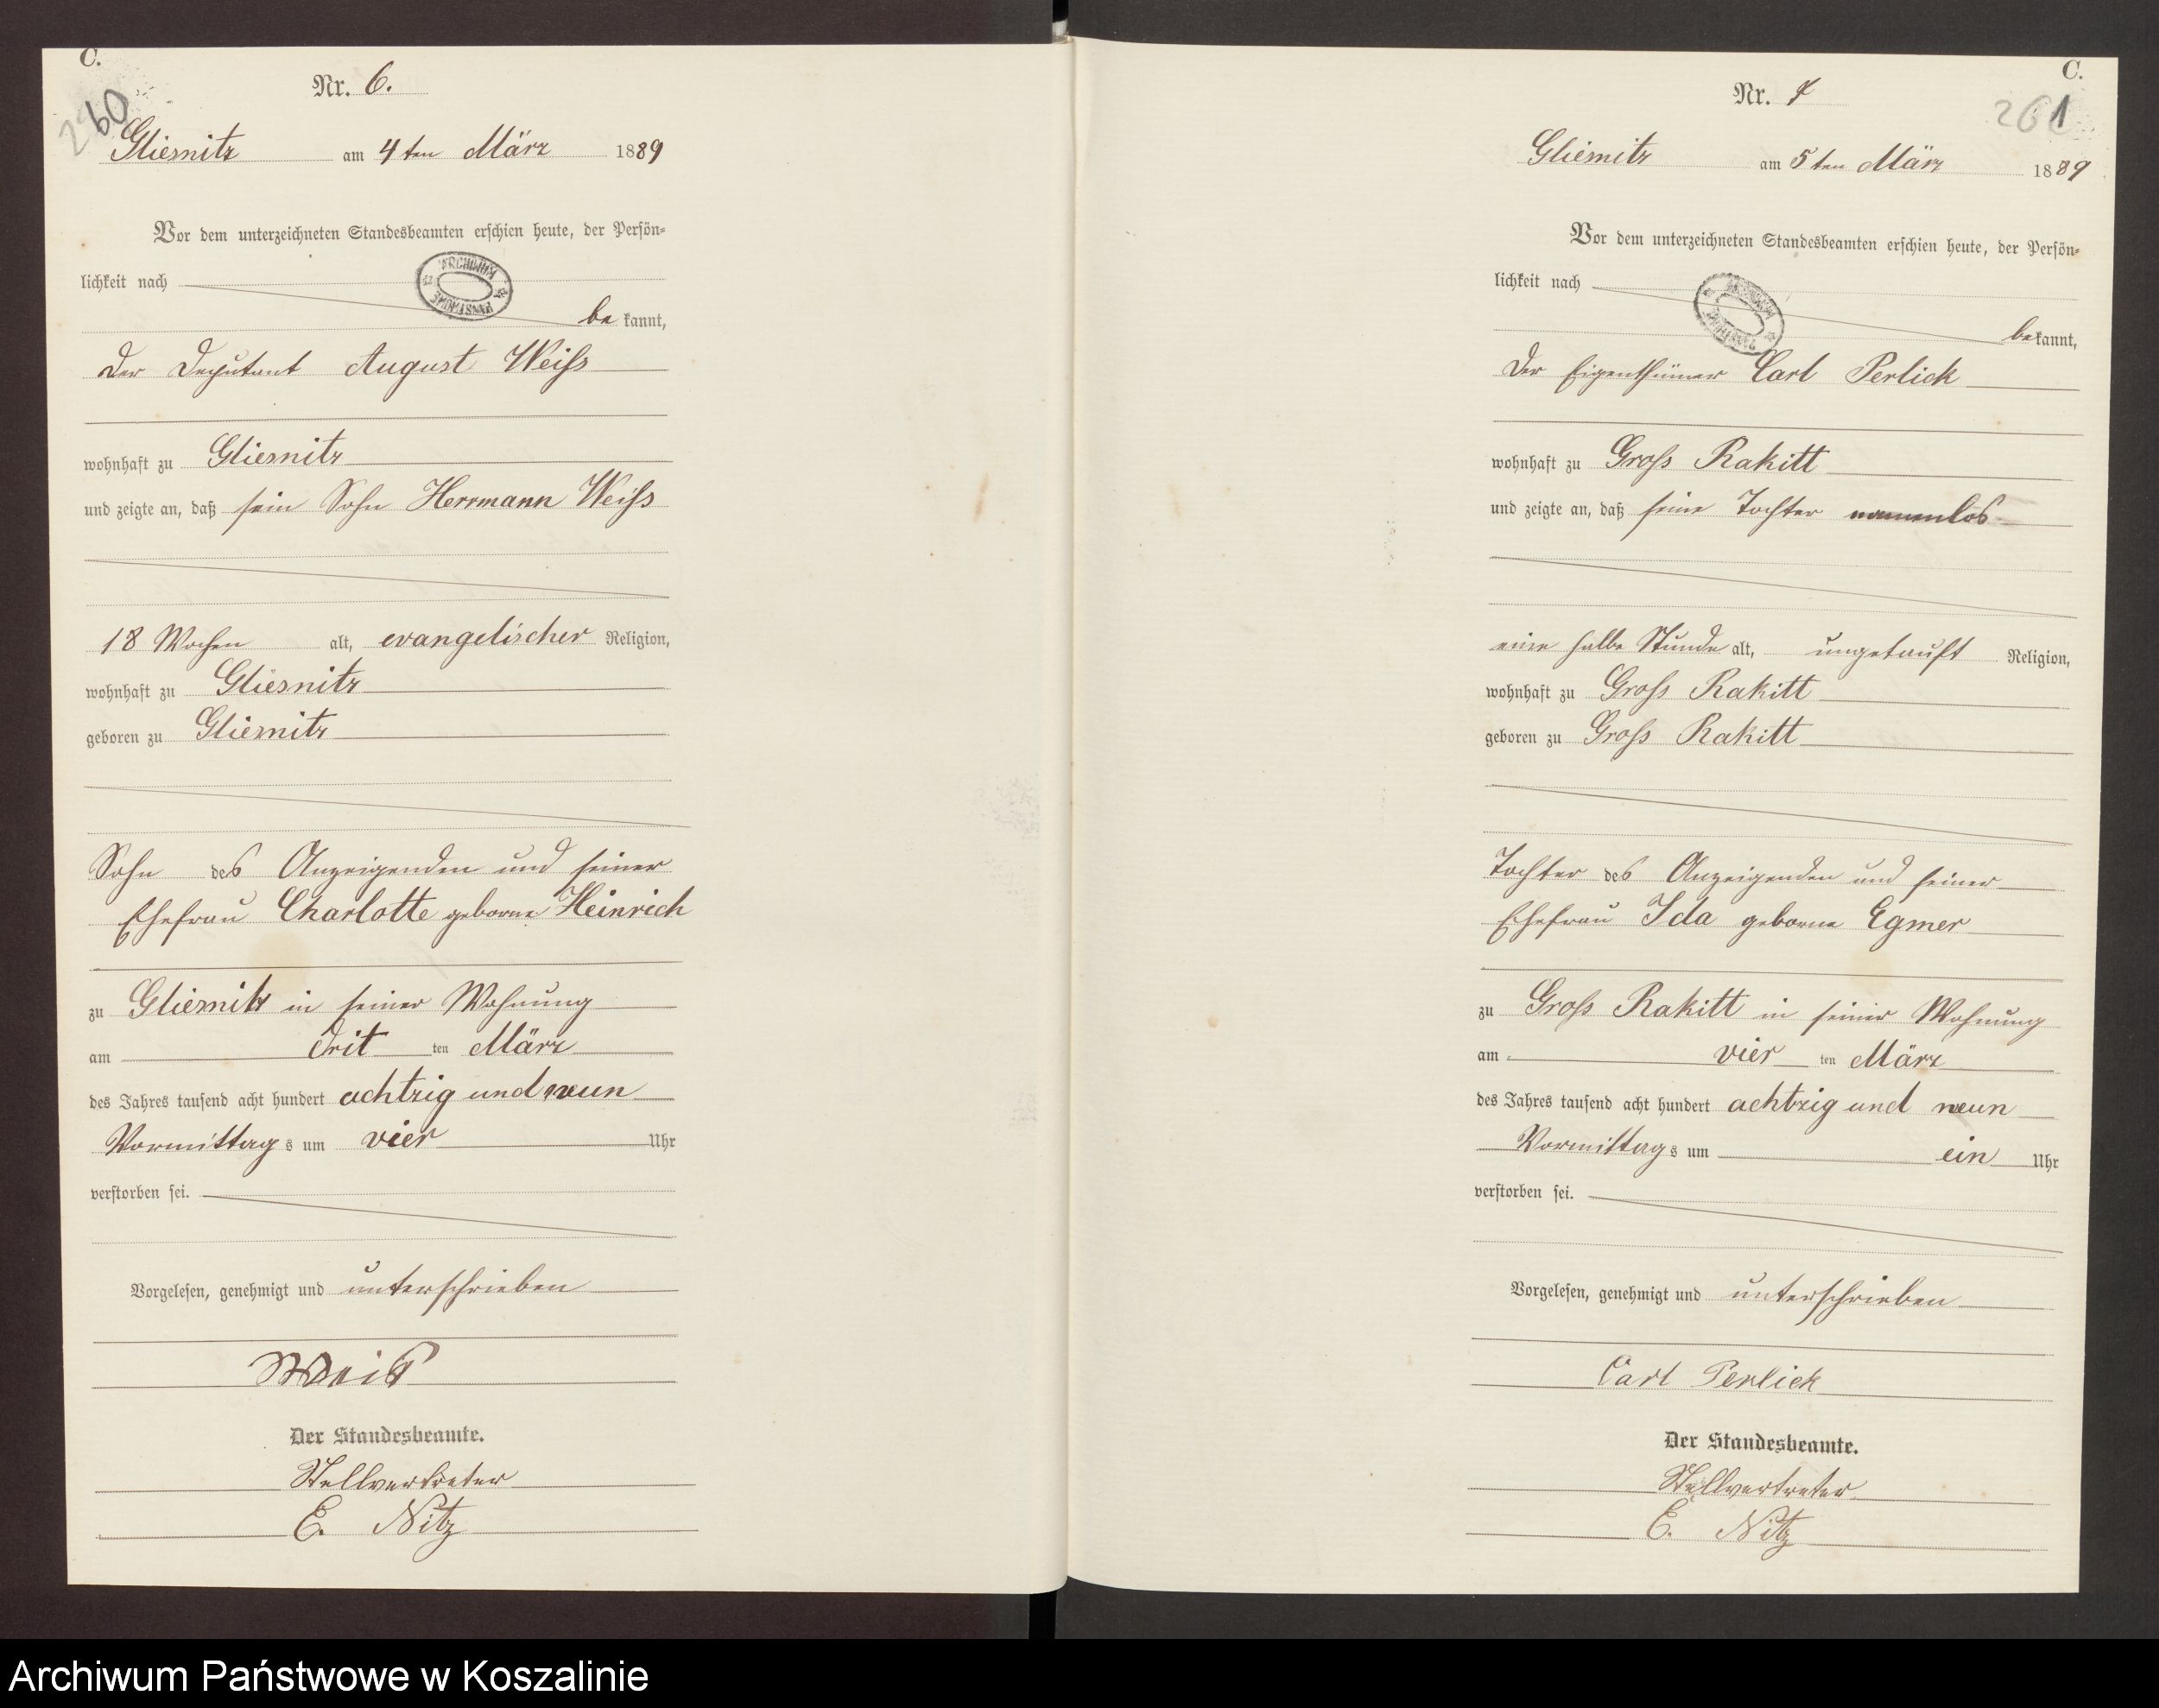 C.
260
Nr. 6.
Gliesnitz am 4ten März 1889
Vor dem unterzeichneten Standesbeamten erschien heute, der Persön-
lichkeit nach
ARCHIWUM PAŃSTWOWE
bekannt,
der Deputant August Weiß
wohnhaft zu Gliesnitz
und zeigte an, daß sein Sohn Herrmann Weiß
18 Wochen alt, evangelischer Religion,
wohnhaft zu Gliesnitz
geboren zu Gliesnitz
Sohn des Anzeigenden und seiner
Ehefrau Charlotte geborne Heinrich
zu Gliesnitz in seiner Wohnung
am drit ten März
des Jahres tausend acht hundert achtzig und neun
Vormittags um vier Uhr
verstorben sei.
Vorgelesen, genehmigt und unterschrieben
Weiß
Der Standesbeamte.
Stellvertreter
E. Nitz
C.
261
Nr. 7
Gliesnitz am 5ten März 1889
Vor dem unterzeichneten Standesbeamten erschien heute, der Persön-
lichkeit nach
bekannt,
der Eigenthümer Carl Perlick
wohnhaft zu Groß Rakitt
und zeigte an, daß seine Tochter namenlos
eine halbe Stunde alt, ungetauft Religion,
wohnhaft zu Groß Rakitt
geboren zu Groß Rakitt
Tochter des Anzeigenden und seiner
Ehefrau Ida geborne Egmer
zu Groß Rakitt in seiner Wohnung
am vier ten März
des Jahres tausend acht hundert achtzig und neun
Vormittags um ein Uhr
verstorben sei.
Vorgelesen, genehmigt und unterschrieben
Carl Perlick
Der Standesbeamte.
Stellvertreter
E. Nitz
Archiwum Państwowe w Koszalinie